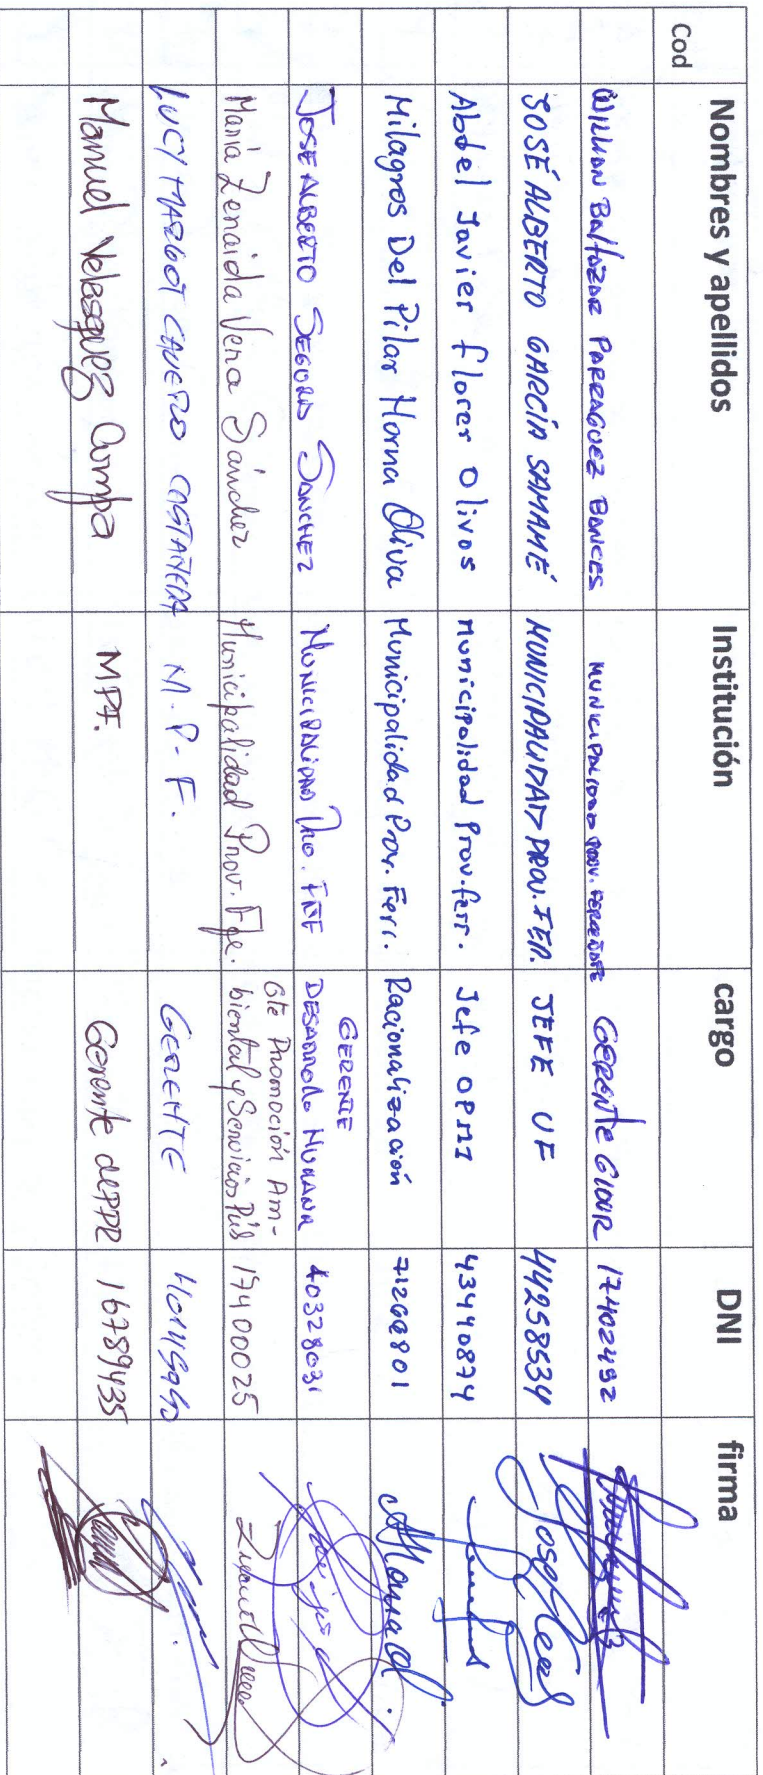 Cod Nombres y apellidos Institución cargo DNI firma
Willian Baltazar Parraguez Bances Municipalidad Prov. Ferreñafe Gerente GIDUR 17402492
JOSÉ ALBERTO GARCÍA SAMAMÉ MUNICIPALIDAD PROV. FER. JEFE UF 44258534
Abdel Javier florer Olivos Municipalidad Prov. ferr. Jefe OPMI 43440874
Milagros Del Pilar Horna Oliva Municipalidad Prov. Ferr. Racionalización 71268801
JOSE ALBERTO SEGURA SANCHEZ MUNICIPALIDAD FRE GERENTE
DESARROLLO HUMANA 40328031
María Zenaida Vera Sánchez Municipalidad Prov. Fe. Gte Promoción Am-
biental y Servicios Púb 17400025
LUCY MARGOT CAVERO CASTAÑEDA M.P-F. GERENTE
Manuel Velasquez Cumpa MPF. Gerente de PPR 16789435